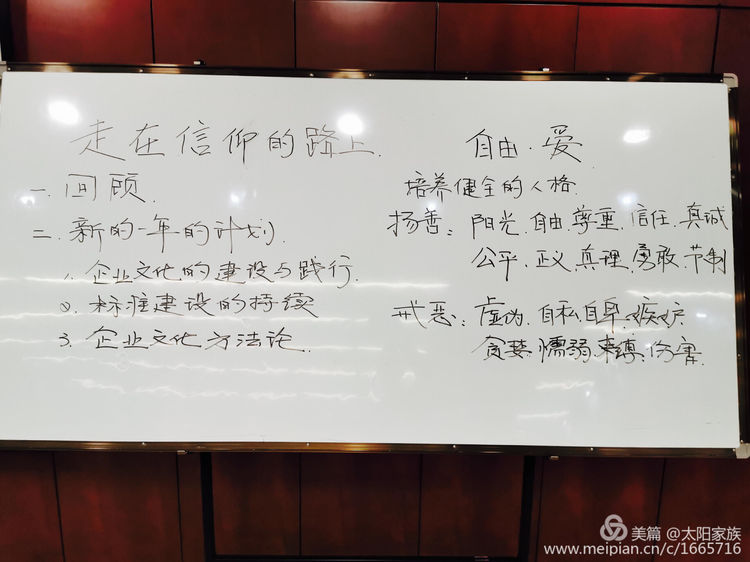 走在信仰的路上.
一.回顾.
二.新的一年的计划.
1.企业文化的建设与践行.
2.标准建设的持续
3.企业文化方法论.
自由·爱.
培养健全的人格.
扬善:阳光.自由.尊重.信任.真诚
公平.正义.真理.勇敢.节制
戒恶:虚伪.自私自卑.嫉妒
贪婪.懦弱.束缚.伤害.
美篇 @太阳家族
www.meipian.cn/c/1665716